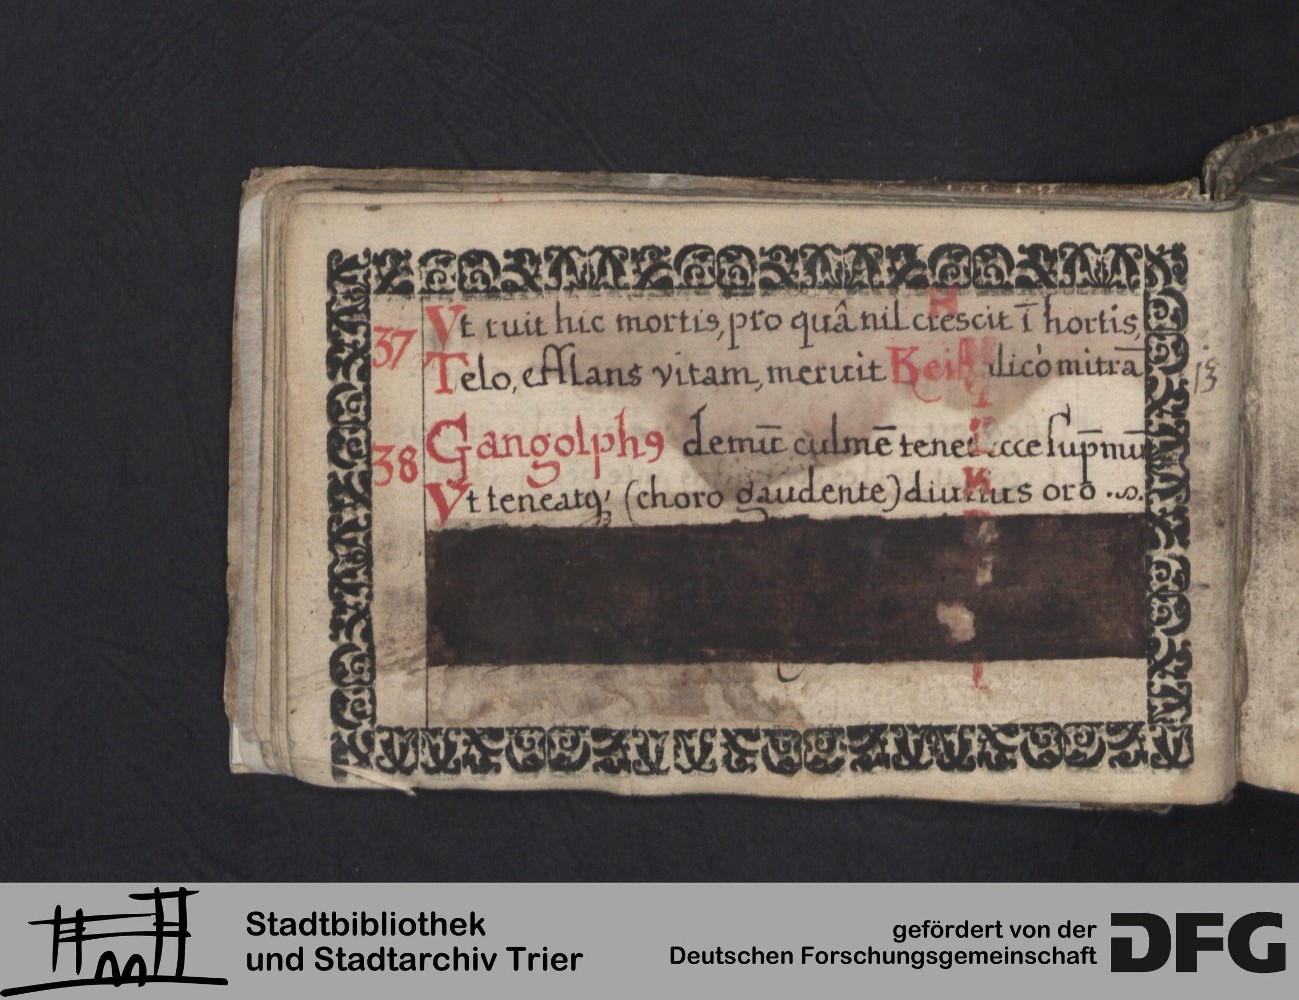 37 Vt ruit hic mortis, pro quâ nil crescit ī hortis,
Telo, efflans vitam, meruit ilicò mitrā
38 Gangolphꝯ demūc culmē tenet ecce sup̄mū
Vt teneatq; (choro gaudente) diutius orō
13
Stadtbibliothek
und Stadtarchiv Trier
gefördert von der
Deutschen Forschungsgemeinschaft
DFG